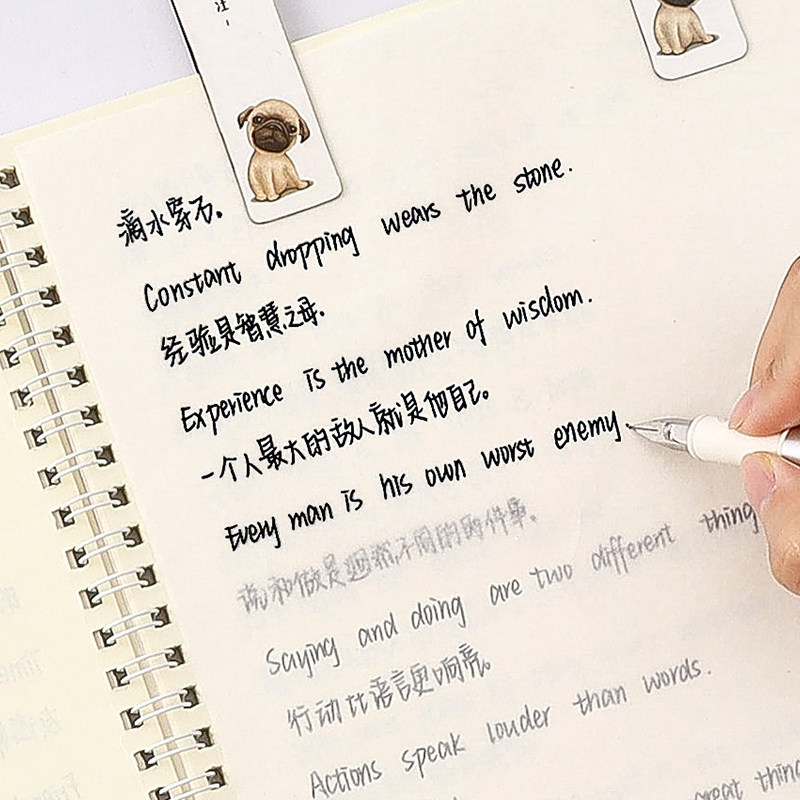 注！
滴水穿石。
Constant dropping wears the stone.
经验是智慧之母.
Experience is the mother of wisdom.
一个人最大的敌人就是他自己。
Every man is his own worst enemy.
说和做是迥然不同的两件事。
Saying and doing are two different thing
行动比语言更响亮。
Actions speak louder than words.
great thing